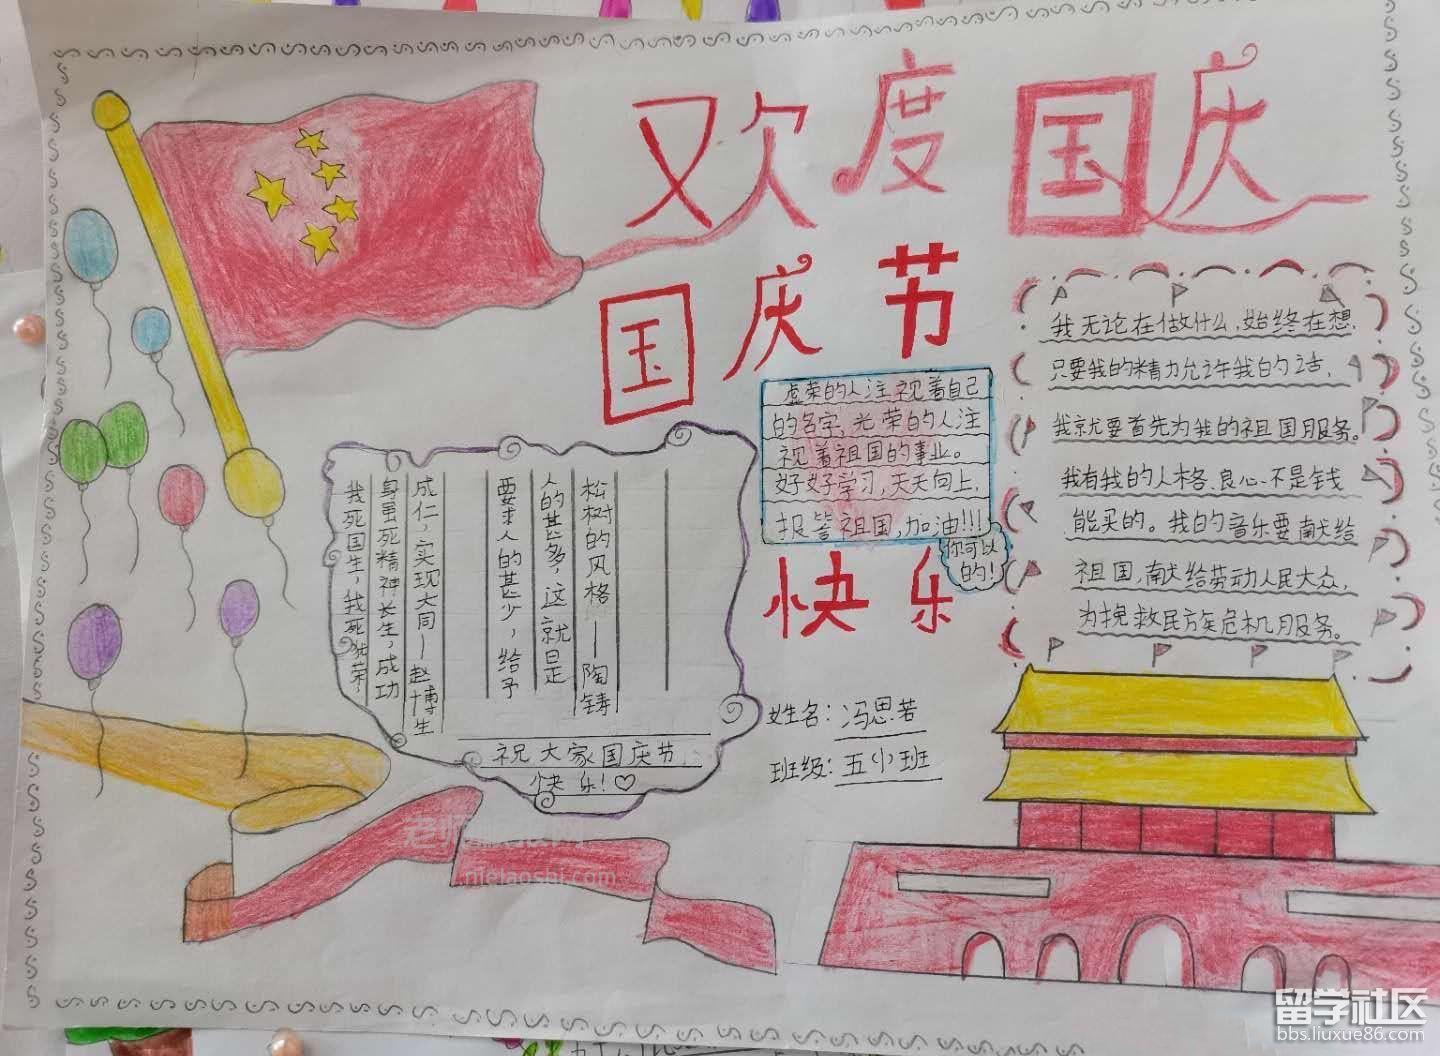 欢度国庆
国庆节
快乐
虚荣的人注视着自己
的名字,光荣的人注
视着祖国的事业。
好好学习,天天向上,
报答祖国,加油!!!
你可以
的!
我无论在做什么,始终在想,
只要我的精力允许我的话,
我就要首先为我的祖国服务。
我有我的人格、良心、不是钱
能买的。我的音乐要献给
祖国,献给劳动人民大众,
为挽救民族危机服务。
松树的风格——陶铸
人的甚多,这就是
要求人的甚少,给予
成仁,实现大同——赵博生
身虽死精神长生,成功
我死国生,我死犹荣,
祝大家国庆节
快乐!♡
姓名:冯思若
班级:五(1)班
老师
www.nielaoshi.com
留学社区
bbs.liuxue86.com